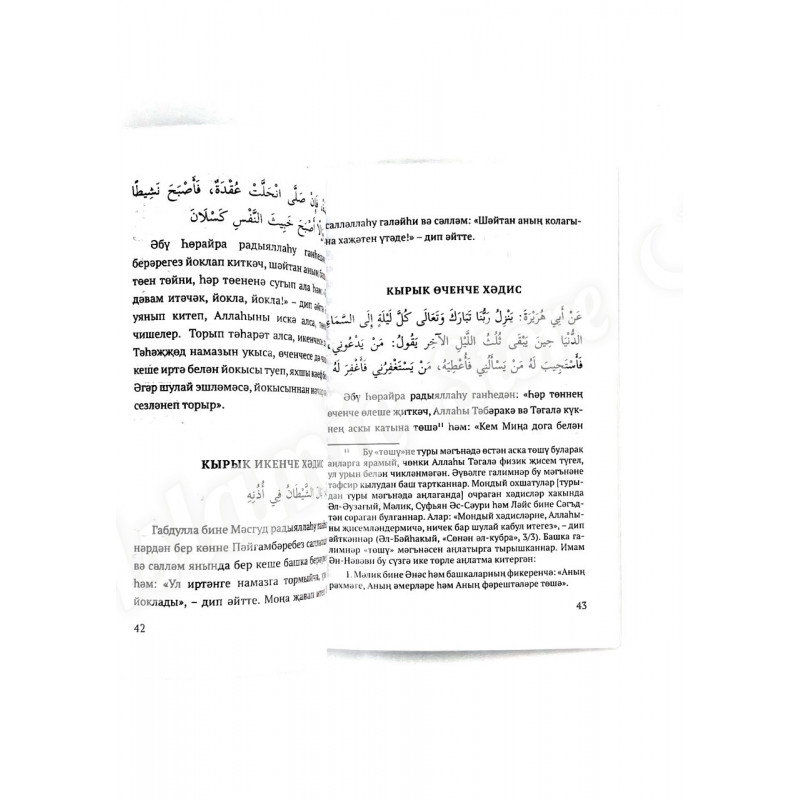 فَإِنْ صَلَّى انْحَلَّتْ عُقْدَةٌ، فَأَصْبَحَ نَشِيطًا
أَصْبَحَ خَبِيثَ النَّفْسِ كَسْلَانَ
Әбү Һөрайра радыяллаһу ганһедән
берәрегез йоклап киткәч, шайтан аның
төен төйни, һәр төененә сугып ала һәм
дәвам итәчәк, йокла, йокла!» – дип әйтә
уянып китеп, Аллаһыны искә алса,
чишелер. Торып тәһарәт алса, икенчесе
Тәһәҗҗөд намазын укыса, өченчесе дә
кеше иртә белән йокысы туеп, яхшы кәеф
Әгәр шулай эшләмәсә, йокысыннан
сезләнеп торыр».
КЫРЫК ИКЕНЧЕ ХӘДИС
الشَّيْطَانُ فِي أُذُنِهِ
Габдулла бине Мәсгуд радыяллаһу
нәрдән бер көнне Пәйгамбәребез
вә сәлләм янында бер кеше башка
һәм: «Ул иртәнге намазга тормыйча,
йоклады», – дип әйтте. Моңа җавап
42
салләллаһу галәйһи вә сәлләм: «Шәйтан аның колагы-
на хаҗәтен үтәде!» – дип әйтте.
КЫРЫК ӨЧЕНЧЕ ХӘДИС
عَنْ أَبِي هُرَيْرَةَ: يَنْزِلُ رَبُّنَا تَبَارَكَ وَتَعَالَى كُلَّ لَيْلَةٍ إِلَى السَّمَاءِ
الدُّنْيَا حِينَ يَبْقَى ثُلُثُ اللَّيْلِ الآخِرِ يَقُولُ: مَنْ يَدْعُونِي،
فَأَسْتَجِيبَ لَهُ مَنْ يَسْأَلُنِي فَأُعْطِيَهُ، مَنْ يَسْتَغْفِرُنِي فَأَغْفِرَ لَهُ
Әбү Һөрайра радыяллаһу ганһедән: «Һәр төннең
өченче өлеше җиткәч, Аллаһы Тәбарәкә вә Тәгалә күк-
нең аскы катына төшә¹¹ һәм: «Кем Миңа дога белән
¹¹ Бу «төшү»не туры мәгънәдә өстән аска төшү буларак
аңларга ярамый, чөнки Аллаһы Тәгалә физик җисем түгел,
ул урын белән чикләнмәгән. Әүвәлге галимнәр бу мәгънәне
тәфсир кылудан баш тартканнар. Мондый охшатулар [туры-
дан туры мәгънәдә аңлаганда] очраган хәдисләр хакында
Әл-Әүзагый, Мәлик, Суфьян Әс-Сәури һәм Ләйс бине Сәгъд-
тән сораган булганнар. Алар: «Мондый хәдисләрне, Аллаһы-
ны җисемләндермичә, ничек бар шулай кабул итегез», – дип
әйткәннәр (Әл-Бәйһакый, «Сөнән әл-кубра», 3/3). Башка га-
лимнәр «төшү» мәгънәсен аңлатырга тырышканнар. Имам
Ән-Нәвәви бу сүзгә ике төрле аңлатма китергән:
1. Мәлик бине Әнәс һәм башкаларның фикеренчә: «Аның
рәхмәте, Аның әмерләре һәм Аның фәрештәләре төшә».
43